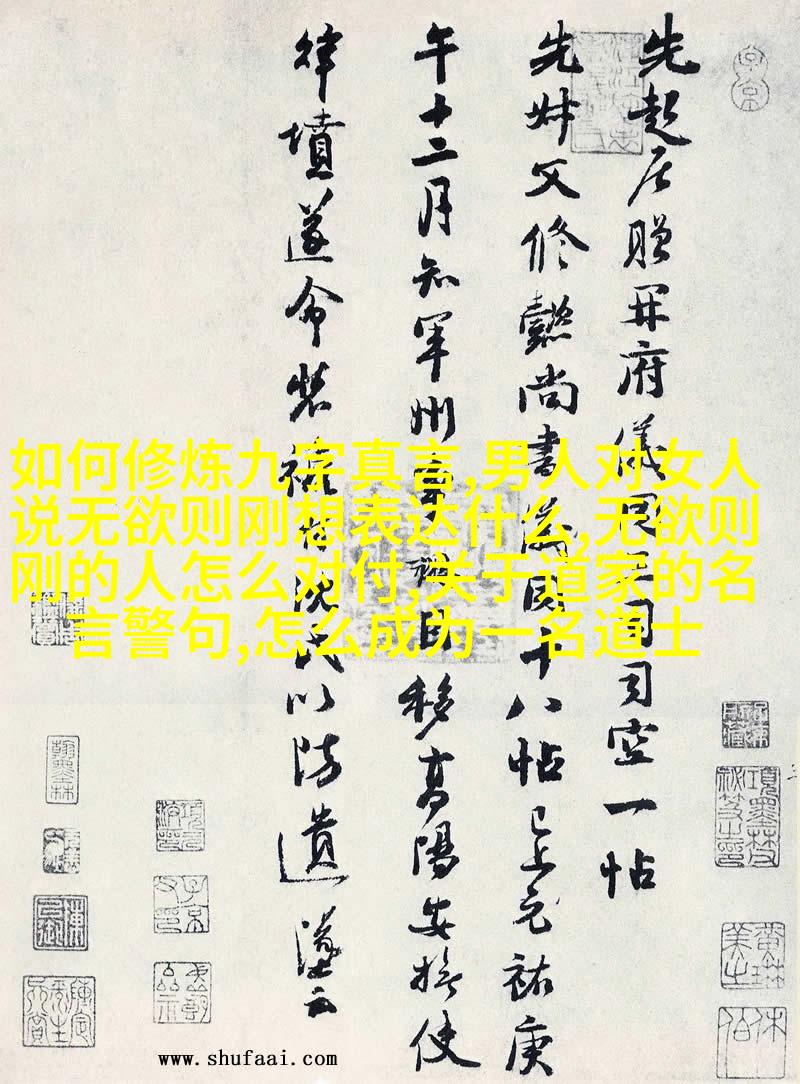 先起居贈開府儀同三司司空一帖
先姊父修懿尚書十八帖已上元祐庚
午十二月知軍州移高陽安撫使
律墳遂命装以防遺墜云
如何修炼九字真言,男人对女人
说无欲则刚想表达什么,无欲则
刚的人怎么对付,关于道家的名
言警句,怎么成为一名道士
www.shufaai.com